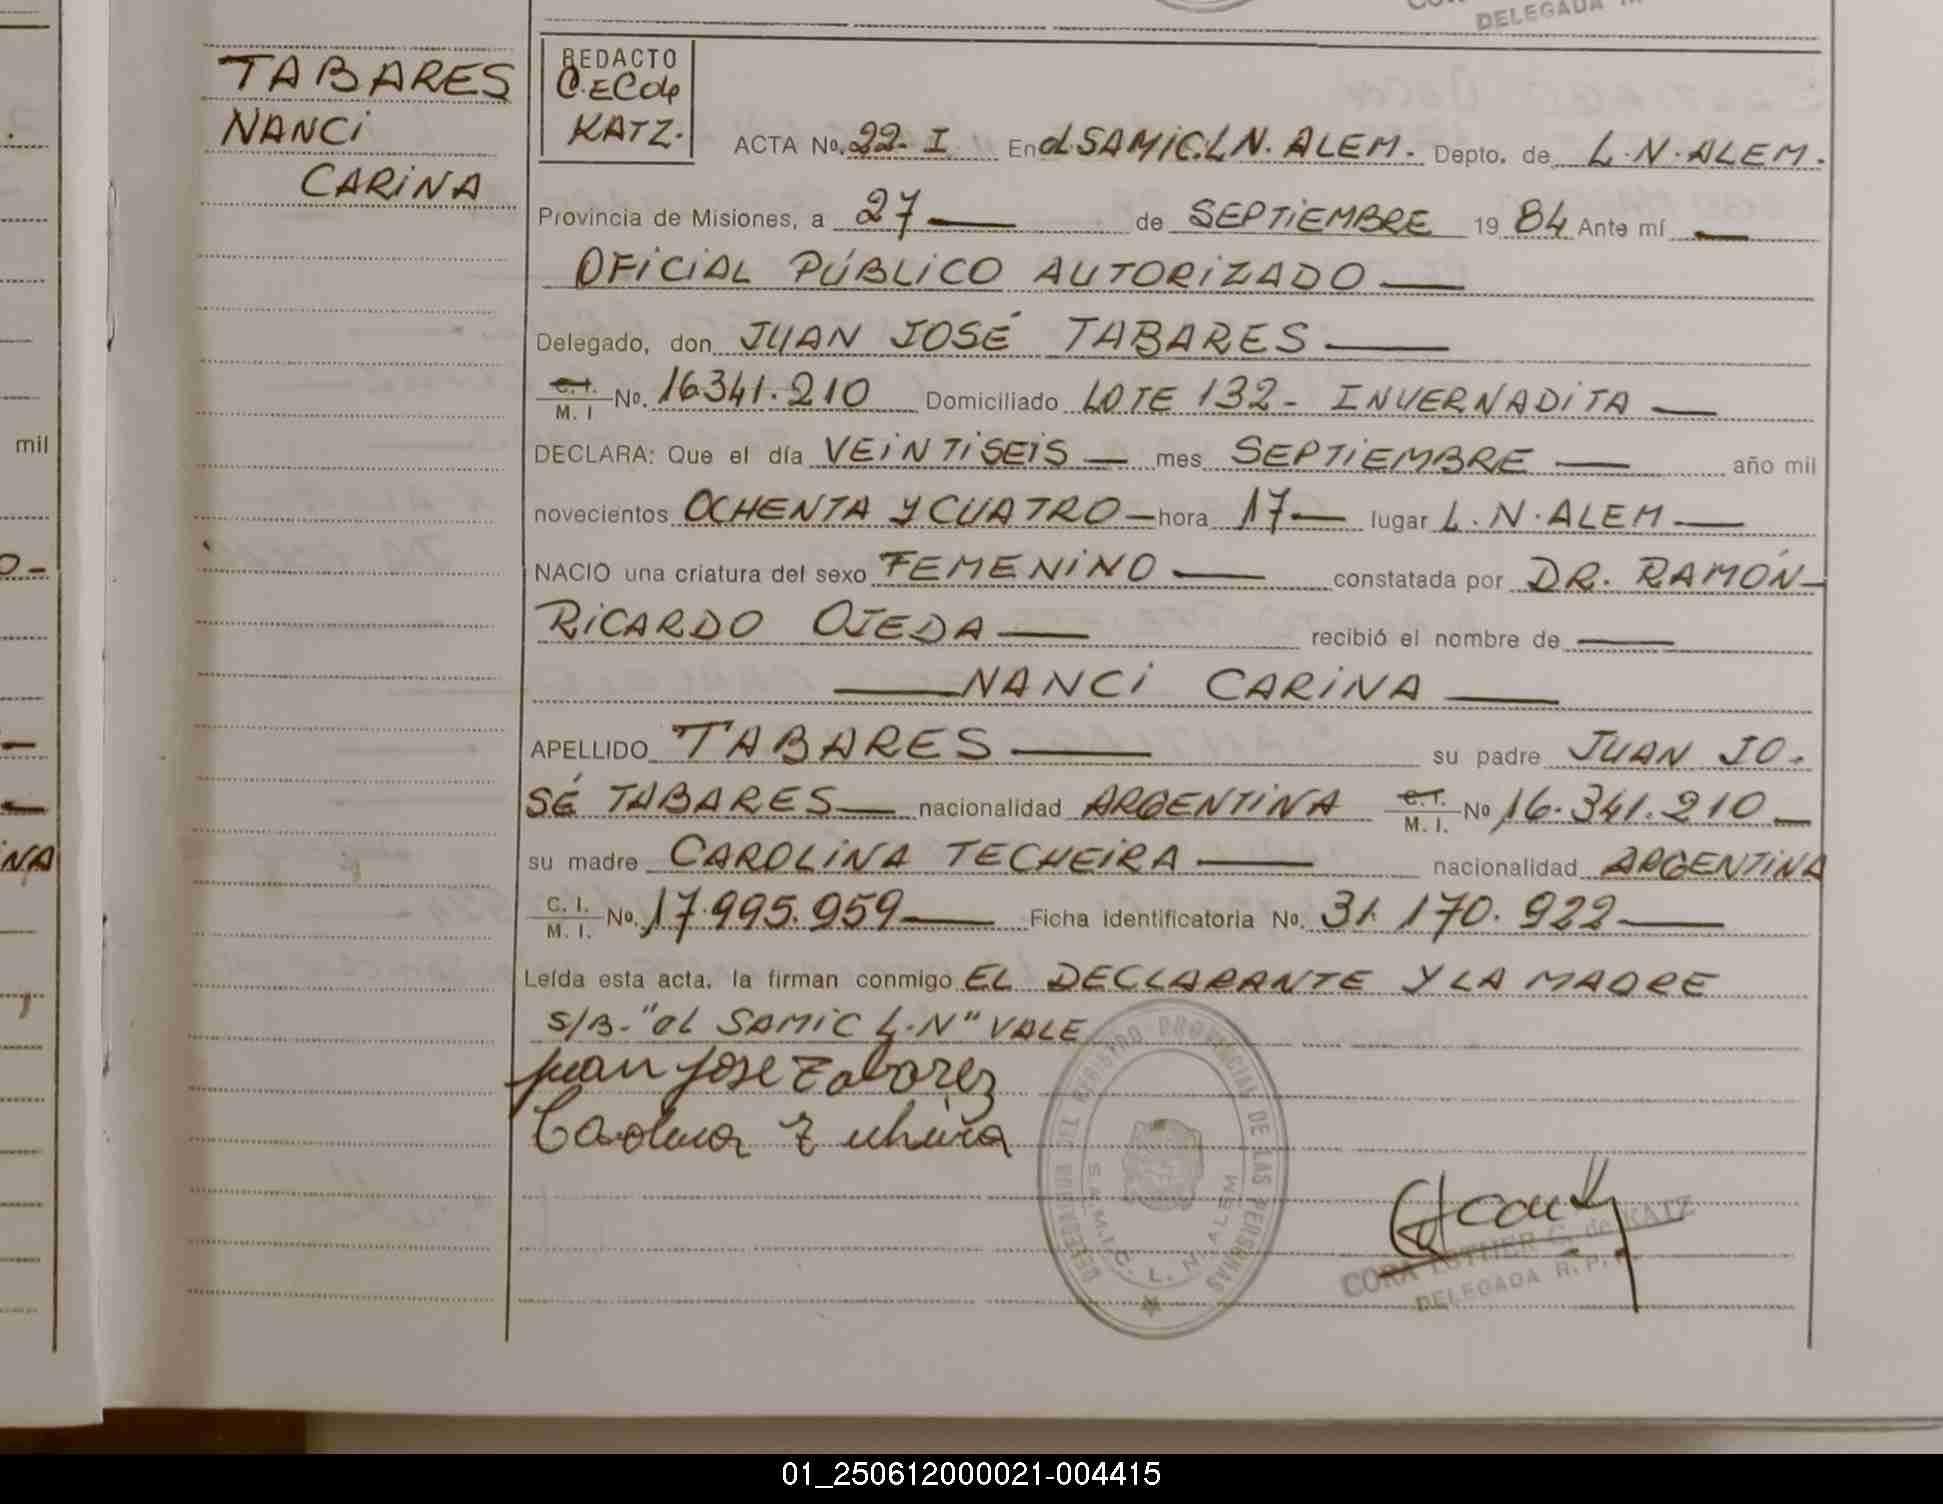 DELEGADA
TABARES
NANCI
CARINA
REDACTO
C.EC de
KATZ.
ACTA No. 22- I En el SAMIC.L N. ALEM. Depto. de L.N.ALEM.
Provincia de Misiones, a 27 de SEPTIEMBRE 19 84 Ante mí
OFICIAL PÚBLICO AUTORIZADO
Delegado, don JUAN JOSÉ TABARES
C.I. M. I No. 16341.210 Domiciliado LOTE 132- INVERNADITA
DECLARA: Que el día VEINTISEIS mes SEPTIEMBRE año mil
novecientos OCHENTA Y CUATRO hora 17 lugar L.N.ALEM
NACIO una criatura del sexo FEMENINO constatada por DR. RAMÓN
RICARDO OJEDA recibió el nombre de
NANCI CARINA
APELLIDO TABARES su padre JUAN JO-
SÉ TABARES nacionalidad ARGENTINA C.I. M. I. No 16.341.210
su madre CAROLINA TECHEIRA nacionalidad ARGENTINA
C. I. M. I. No. 17.995.959 Ficha identificatoria No. 31.170.922
Leída esta acta, la firman conmigo EL DECLARANTE Y LA MADRE
S/B-"el SAMIC L.N" VALE
Juan Jose Tabarez
Carolina Techeira
DEL REGISTRO PROVINCIAL DE LAS PERSONAS
S.A.M.I.C. L. N. ALEM
CORA ESTHER C. de KATZ
DELEGADA R.P.P.
mil
INA
01_250612000021-004415